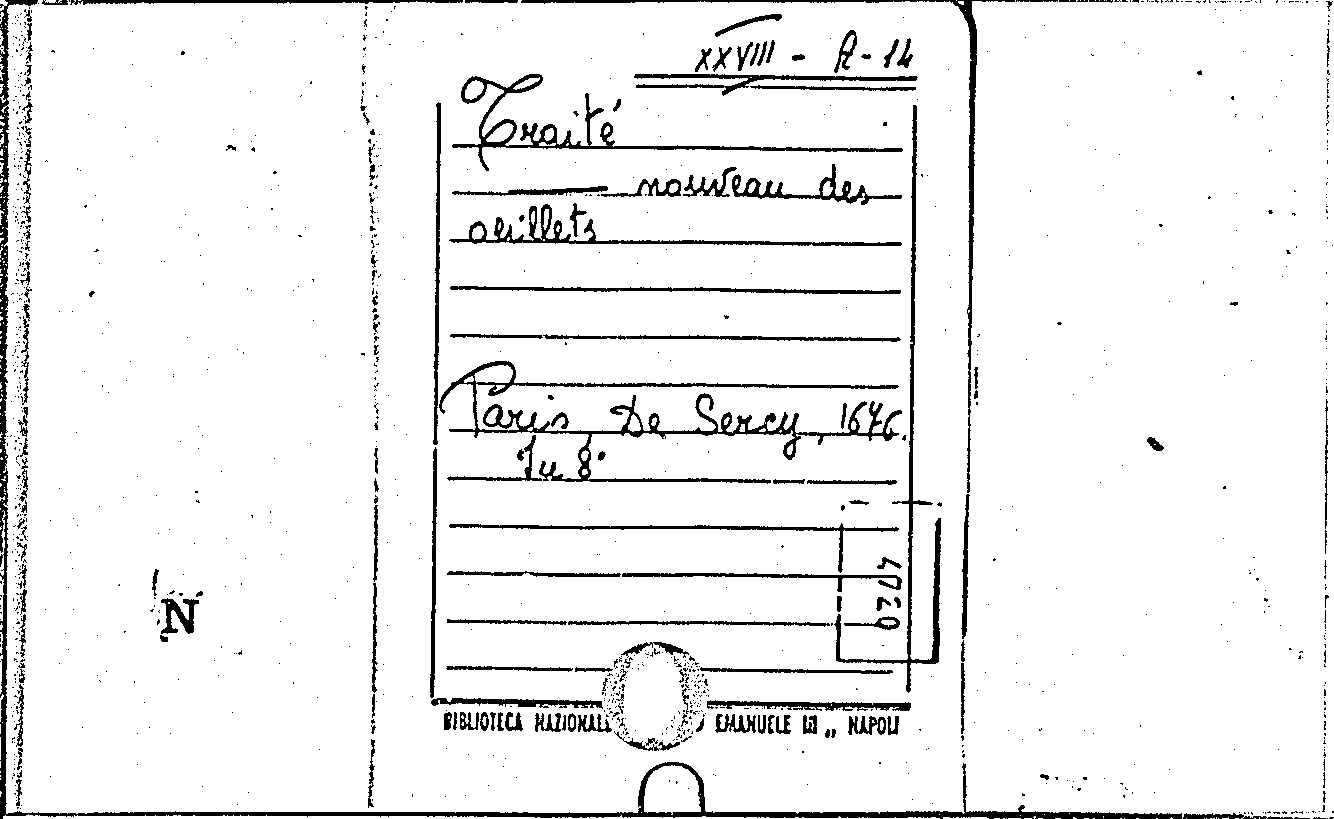 XXVIII - A - 14
Traité
nouveau des
œillets
Paris, De Sercy, 1676.
In 8°
0374
BIBLIOTECA NAZIONALE EMANUELE III „ NAPOLI
N